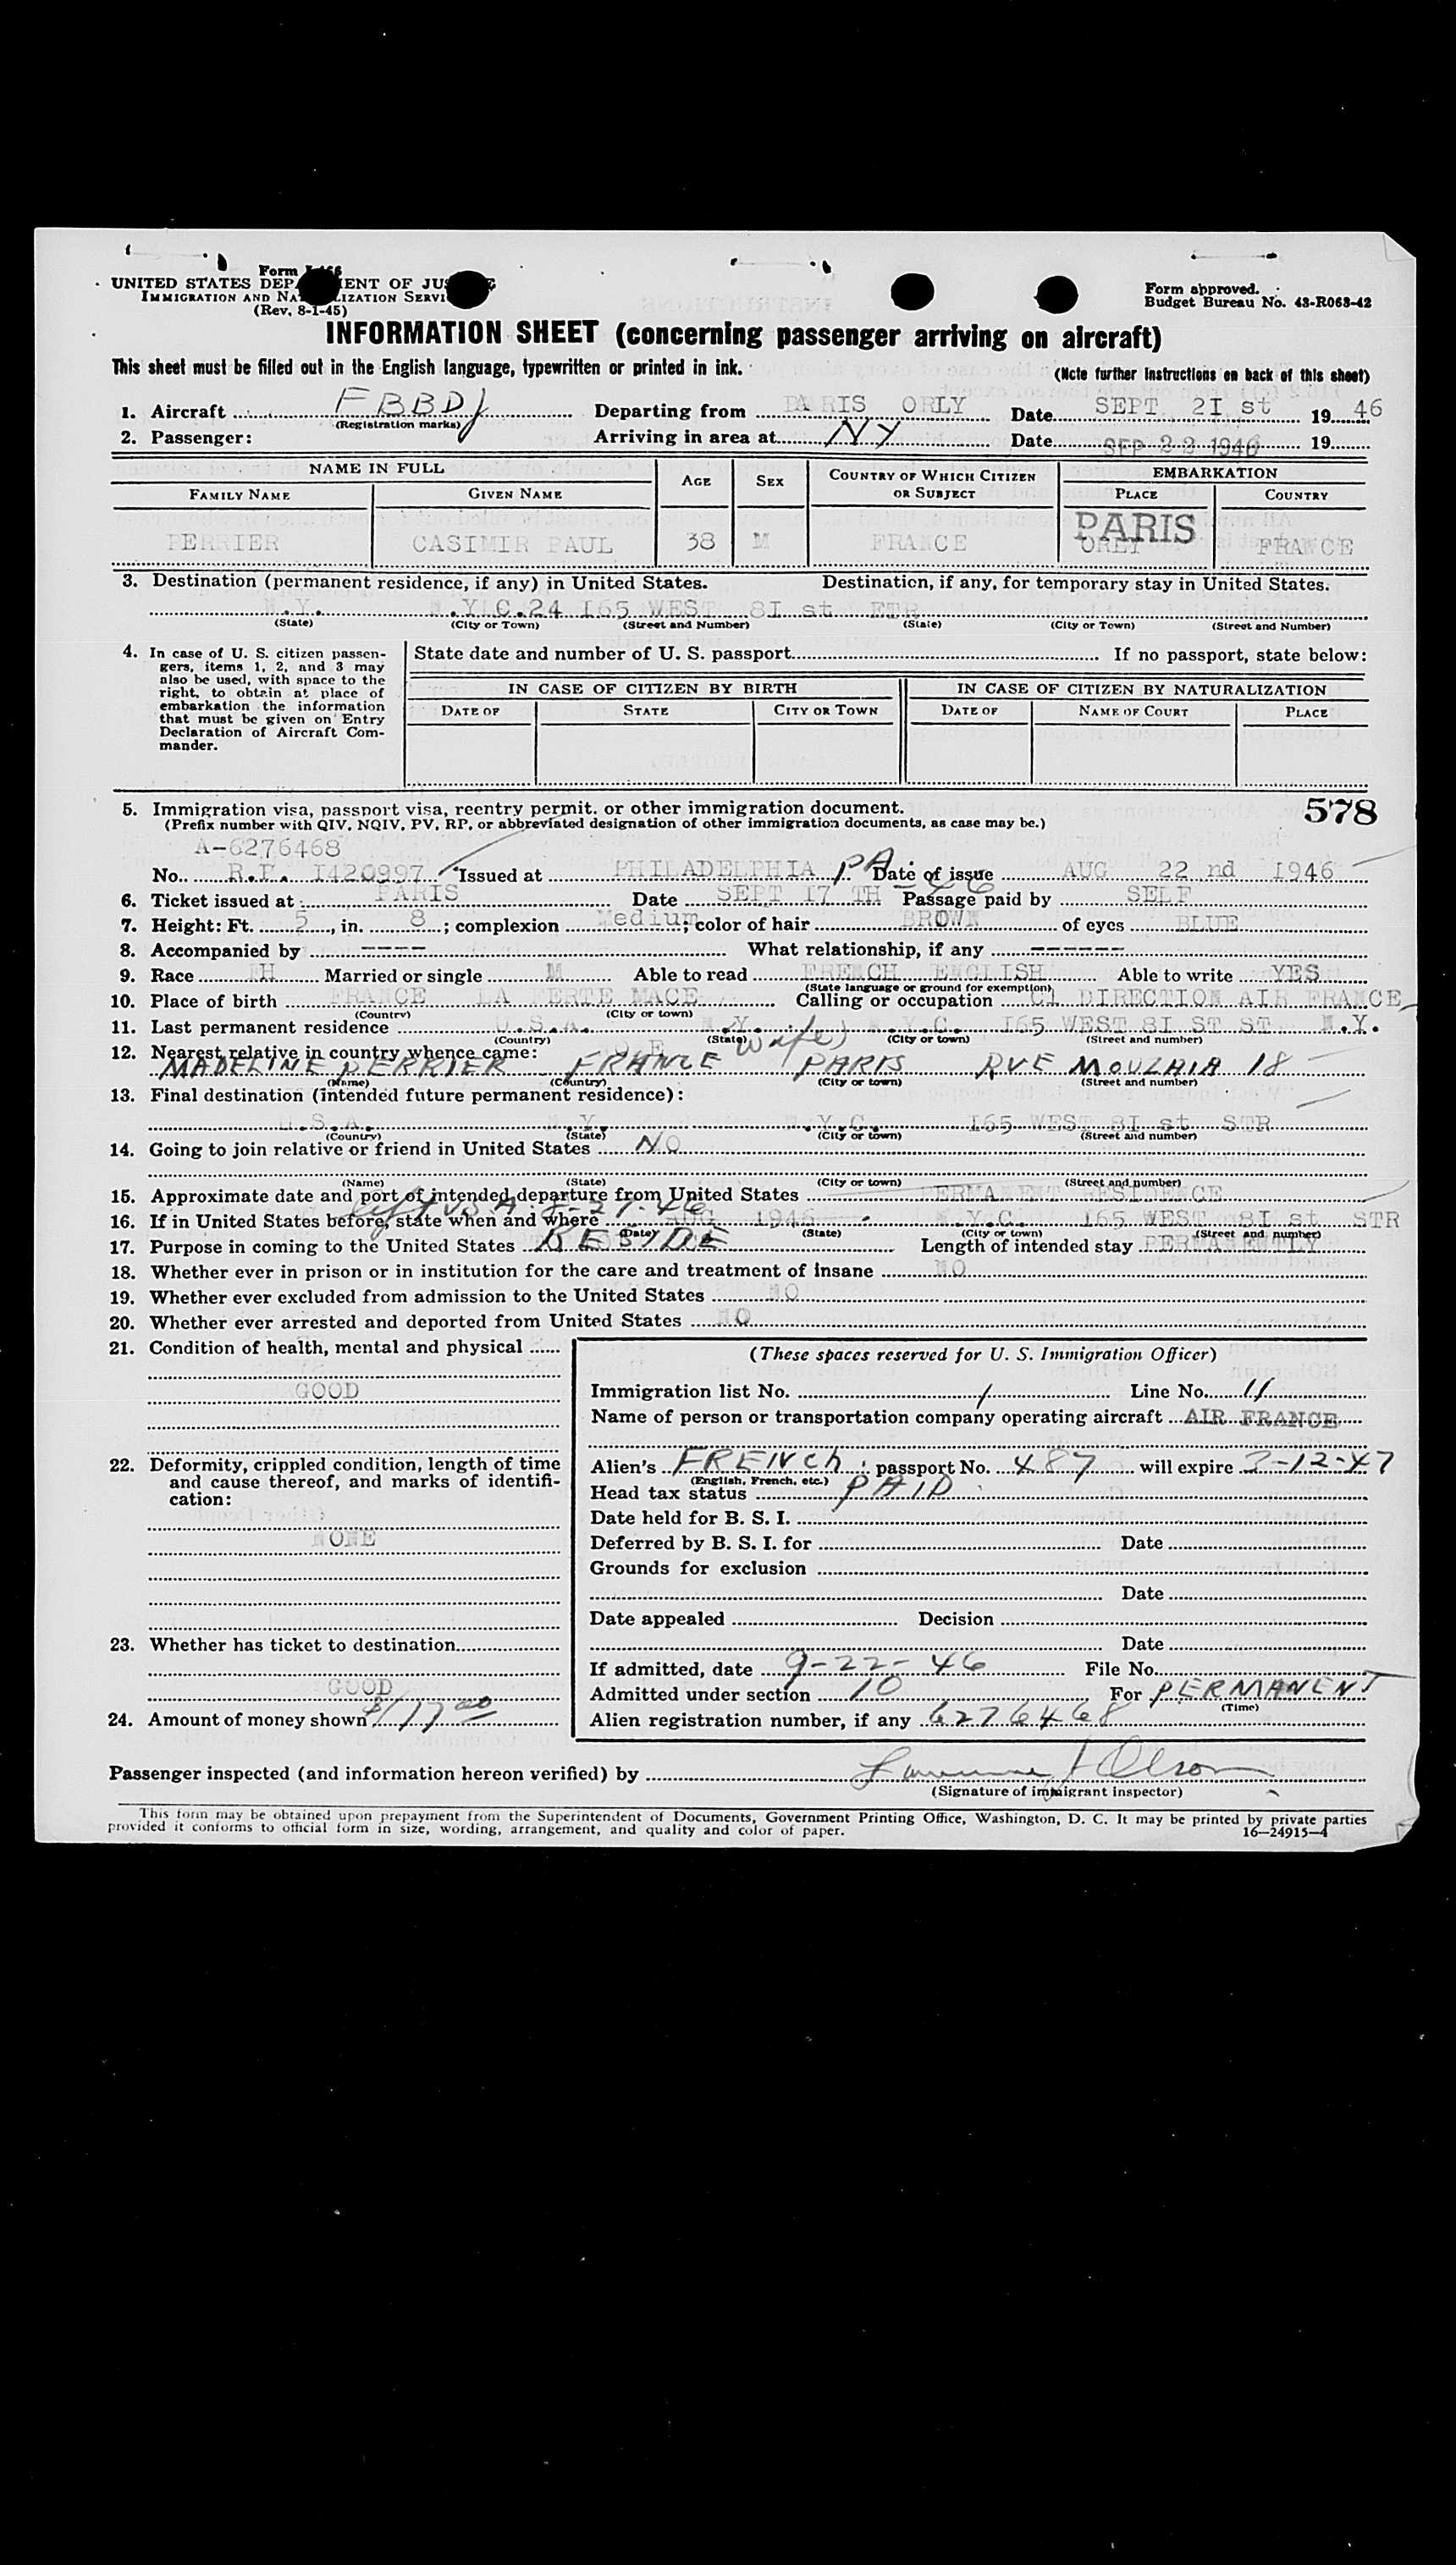 Form I-466
UNITED STATES DEPARTMENT OF JUSTICE
IMMIGRATION AND NATURALIZATION SERVICE
(Rev. 8-1-45)
Form approved.
Budget Bureau No. 43-R063-42
INFORMATION SHEET (concerning passenger arriving on aircraft)
This sheet must be filled out in the English language, typewritten or printed in ink.
(Note further instructions on back of this sheet)
1. Aircraft FBBDJ Departing from PARIS ORLY Date SEPT 21 st 1946
(Registration marks)
2. Passenger: Arriving in area at NY Date SEP 22 1946 19
NAME IN FULL AGE SEX COUNTRY OF WHICH CITIZEN OR SUBJECT EMBARKATION
FAMILY NAME GIVEN NAME PLACE COUNTRY
PERRIER CASIMIR PAUL 38 M FRANCE PARIS ORLY FRANCE
3. Destination (permanent residence, if any) in United States. Destination, if any, for temporary stay in United States.
N.Y. N.Y.C.24 165 WEST 8I st STR
(State) (City or Town) (Street and Number) (State) (City or Town) (Street and Number)
4. In case of U. S. citizen passen-
gers, items 1, 2, and 3 may
also be used, with space to the
right, to obtain at place of
embarkation the information
that must be given on Entry
Declaration of Aircraft Com-
mander.
State date and number of U. S. passport If no passport, state below:
IN CASE OF CITIZEN BY BIRTH IN CASE OF CITIZEN BY NATURALIZATION
DATE OF STATE CITY OR TOWN DATE OF NAME OF COURT PLACE
5. Immigration visa, passport visa, reentry permit, or other immigration document. 578
(Prefix number with QIV, NQIV, PV, RP, or abbreviated designation of other immigration documents, as case may be.)
A-6276468
No. R.P. I420997 Issued at PHILADELPHIA PA. Date of issue AUG 22 nd 1946
6. Ticket issued at PARIS Date SEPT 17 TH 46 Passage paid by SELF
7. Height: Ft. 5, in. 8; complexion Medium; color of hair BROWN of eyes BLUE
8. Accompanied by ---- What relationship, if any ------
9. Race H Married or single M Able to read FRENCH ENGLISH Able to write YES
(State language or ground for exemption)
10. Place of birth FRANCE LA FERTE MACE Calling or occupation DIRECTION AIR FRANCE
(Country) (City or town)
11. Last permanent residence U.S.A. N.Y. N.Y.C. 165 WEST 8I ST ST N.Y.
(Country) (State) (City or town) (Street and number)
12. Nearest relative in country whence came: (wife)
MADELINE PERRIER FRANCE PARIS RUE MOUZAIA 18
(Name) (Country) (City or town) (Street and number)
13. Final destination (intended future permanent residence):
U.S.A. N.Y. N.Y.C. 165 WEST 8I st STR
(Country) (State) (City or town) (Street and number)
14. Going to join relative or friend in United States NO
(Name) (State) (City or town) (Street and number)
15. Approximate date and port of intended departure from United States PERMANENT RESIDENCE
left USA 8-27-46
16. If in United States before, state when and where AUG 1946 N.Y.C. 165 WEST 8I st STR
(Date) (State) (City or town) (Street and number)
17. Purpose in coming to the United States RESIDE Length of intended stay PERMANENTLY
18. Whether ever in prison or in institution for the care and treatment of insane NO
19. Whether ever excluded from admission to the United States NO
20. Whether ever arrested and deported from United States NO
21. Condition of health, mental and physical
GOOD
22. Deformity, crippled condition, length of time
and cause thereof, and marks of identifi-
cation:
NONE
23. Whether has ticket to destination
GOOD
24. Amount of money shown $117 00
(These spaces reserved for U. S. Immigration Officer)
Immigration list No. 1 Line No. 11
Name of person or transportation company operating aircraft AIR FRANCE
Alien's FRENCH passport No. 487 will expire 3-12-47
(English, French, etc.)
Head tax status PAID
Date held for B. S. I.
Deferred by B. S. I. for Date
Grounds for exclusion
Date
Date appealed Decision
Date
If admitted, date 9-22-46 File No.
Admitted under section 10 For PERMANENT
(Time)
Alien registration number, if any 6276468
Passenger inspected (and information hereon verified) by
(Signature of immigrant inspector)
This form may be obtained upon prepayment from the Superintendent of Documents, Government Printing Office, Washington, D. C. It may be printed by private parties
provided it conforms to official form in size, wording, arrangement, and quality and color of paper.
16—24915-4